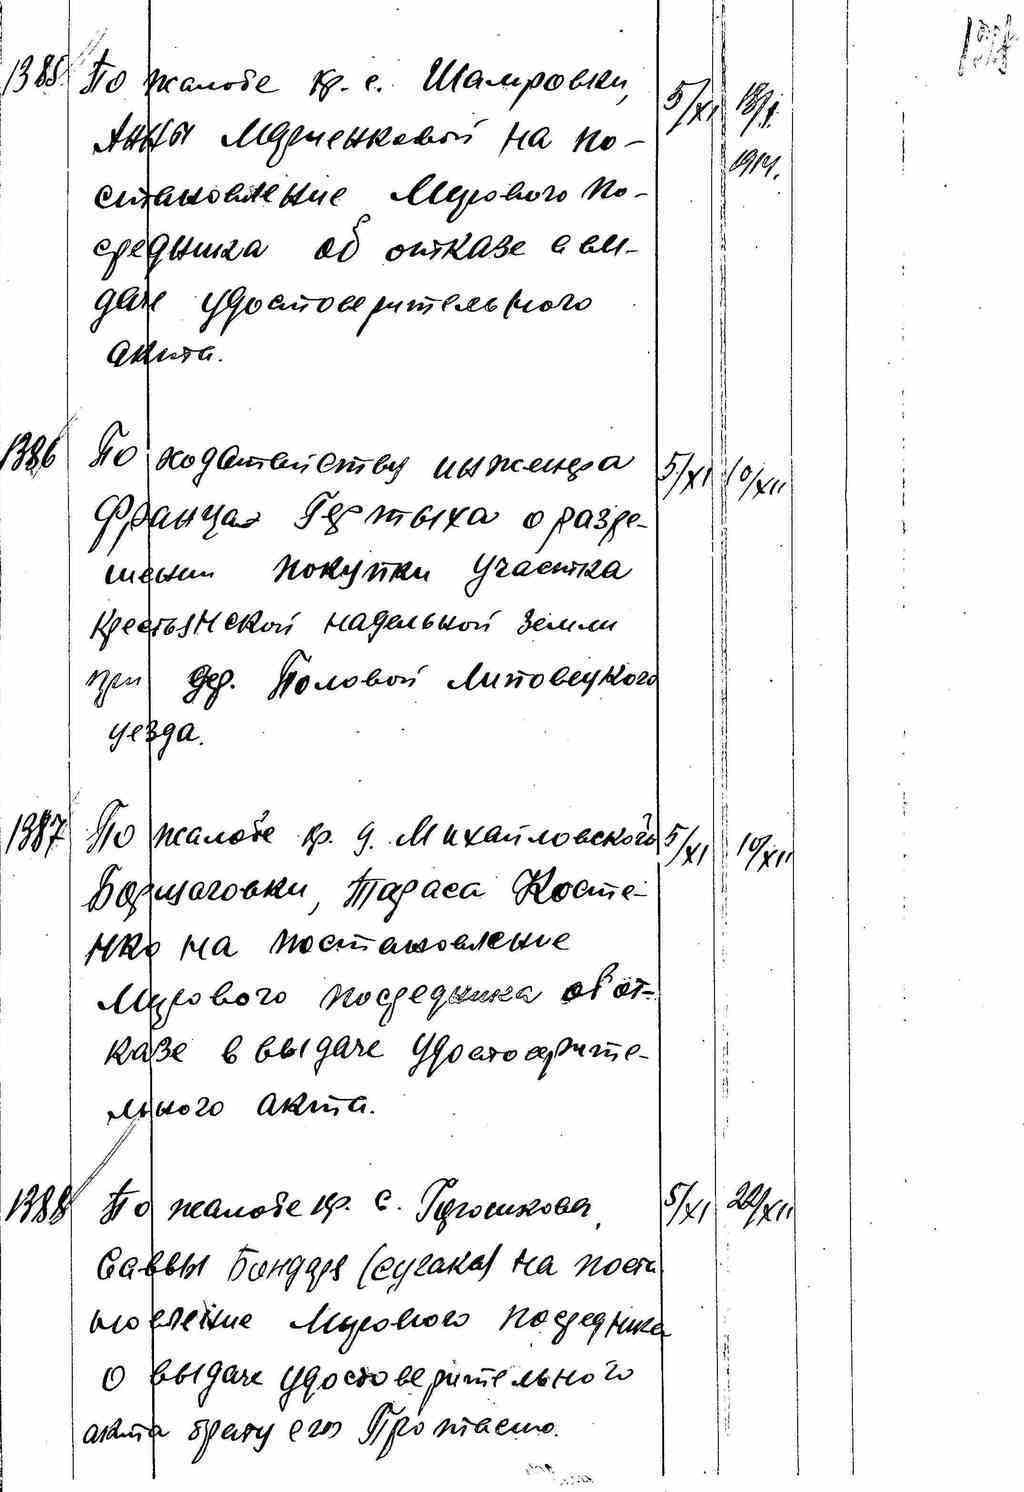 1385 По жалобе кр. с. Шамровки, 5/XI 18/I
Анны Марченковой на по- 1914.
становление Мирового по-
средника об отказе в вы-
даче удостоверительного
акта.
1386 По ходатайству инженера 5/XI 10/XII
Франца Гертыха о разре-
шении покупки участка
крестьянской надельной земли
при дер. Половой Липовецкого
уезда.
1387 По жалобе кр. д. Михайловской 5/XI 10/XII
Борщаговки, Тараса Косте-
нко на постановление
Мирового посредника об от-
казе в выдаче удостоверите-
льного акта.
1388 По жалобе кр. с. 5/XI 22/XII
Саввы Бондаря (сугака) на поста
новление Мирового посредника
о выдаче удостоверительного
акта брату его Протасию.